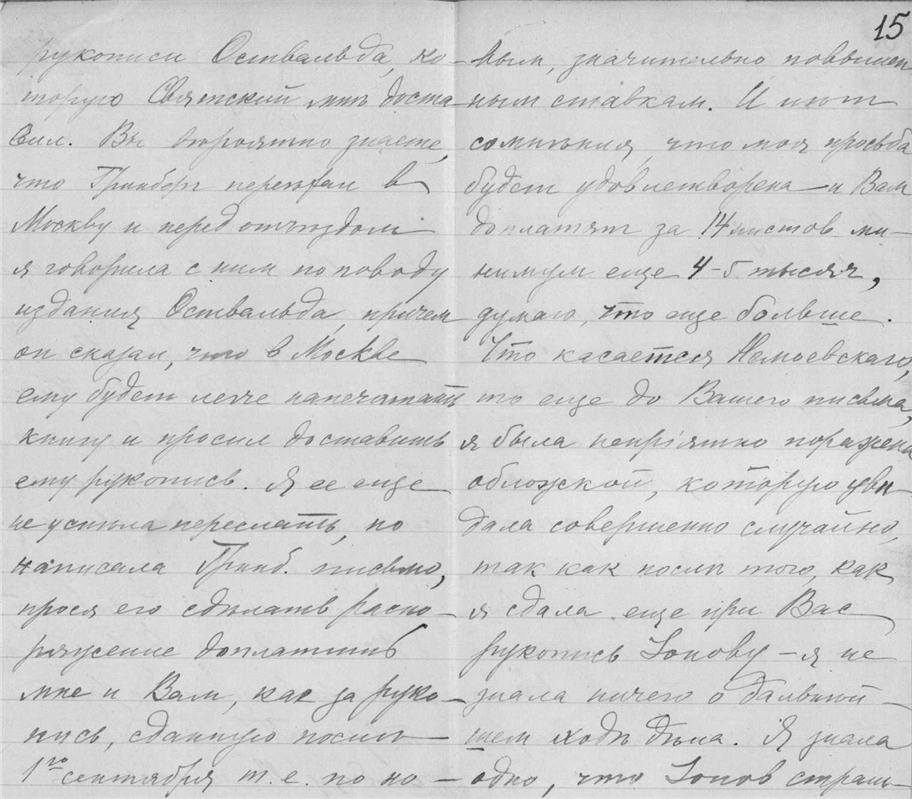 15
рукописи Оствальда, ко-
торую Святский мнѣ доста-
вил. Вы вѣроятно знаете,
что Гринберг переѣхал в
Москву и перед отъѣздом
я говорила с ним по поводу
издания Оствальда, причем
он сказал, что в Москве
ему будет легче напечатать
книгу и просил доставить
ему рукопись. Я ее еще
не успѣла переслать, но
написала Гринб. письмо,
прося его сдѣлать распо-
ряжение доплатить
мне и Вам, как за руко-
пись, сданную послѣ
1го сентября т.е. по но-
вым, значительно повышен
ным ставкам. И нѣт
сомнѣния, что моя просьба
будет удовлетворена и Вам
доплатят за 14 листов ми-
нимум еще 4-5 тысяч,
думаю, что еще больше.
Что касается Немоевскаго,
то еще до Вашего письма,
я была непріятно поражена
обложкой, которую уви
дала совершенно случайно,
так как послѣ того, как
я сдала еще при Вас
рукопись Іонову - я не
знала ничего о дальней-
шем ходѣ дѣла. Я знала
одно, что Іонов страш-